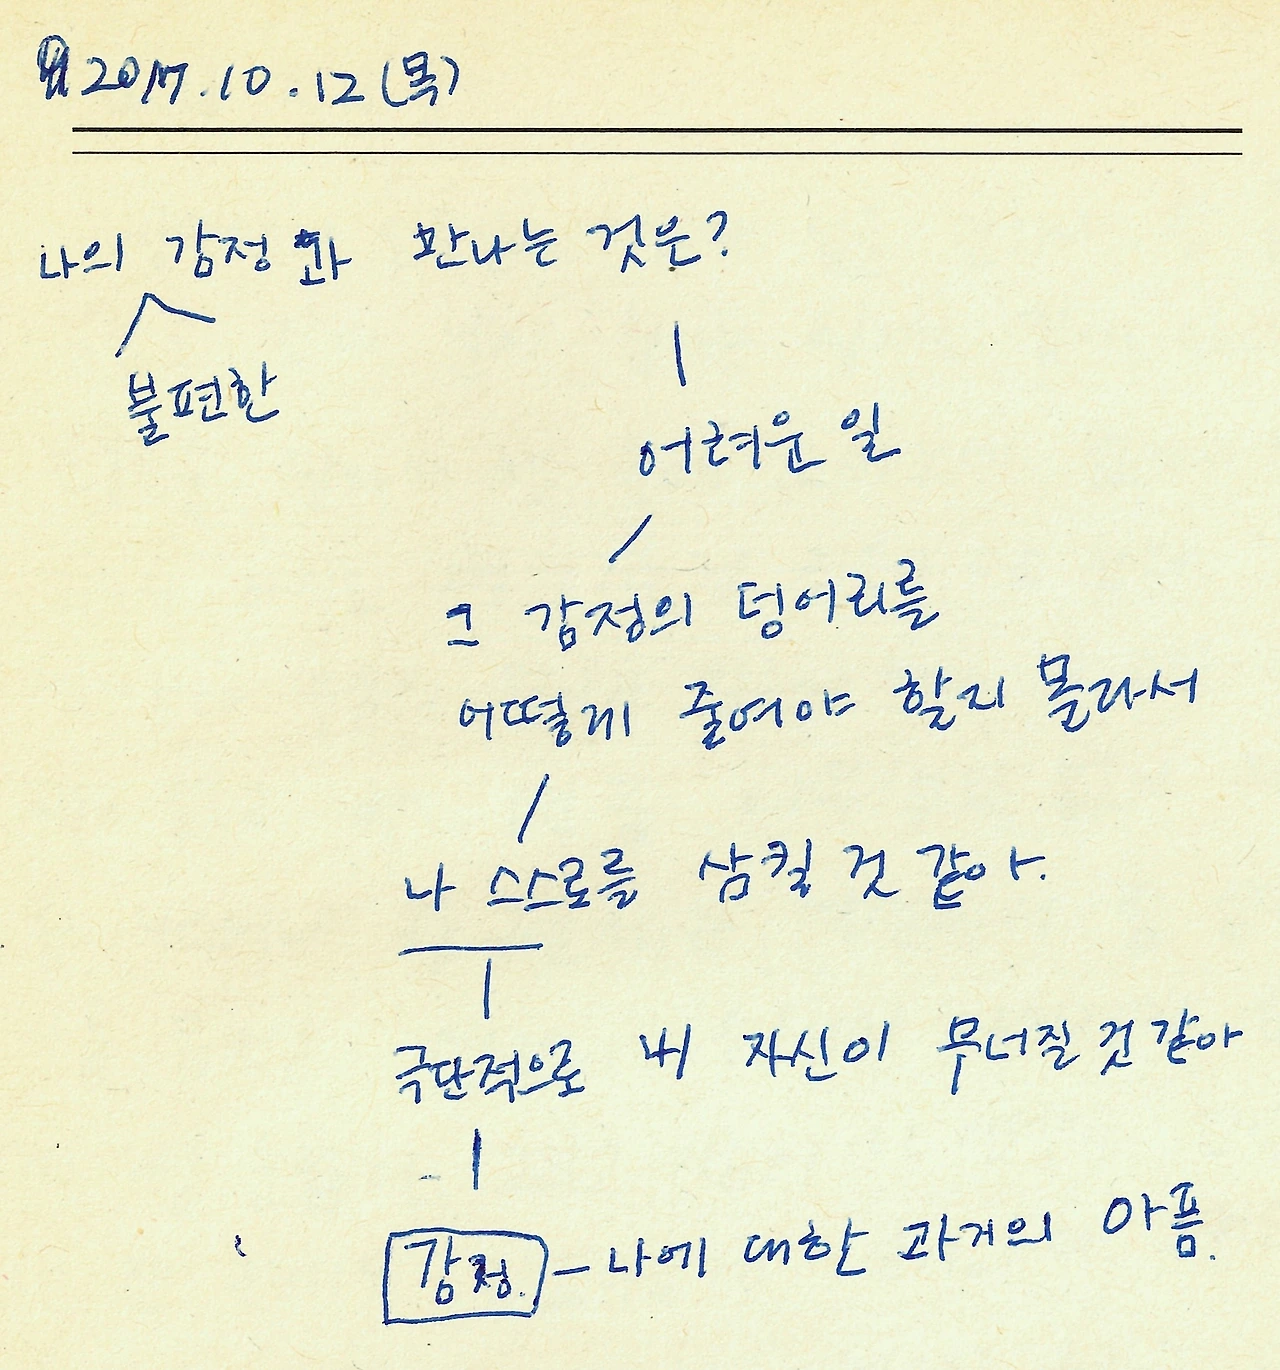 2017.10.12(목)
나의 감정과 만나는 것은?
불편한
어려운 일
그 감정의 덩어리를
어떻게 줄여야 할지 몰라서
나 스스로를 삼킬 것 같아.
극단적으로 내 자신이 무너질 것 같아
감정. - 나에 대한 과거의 아픔.